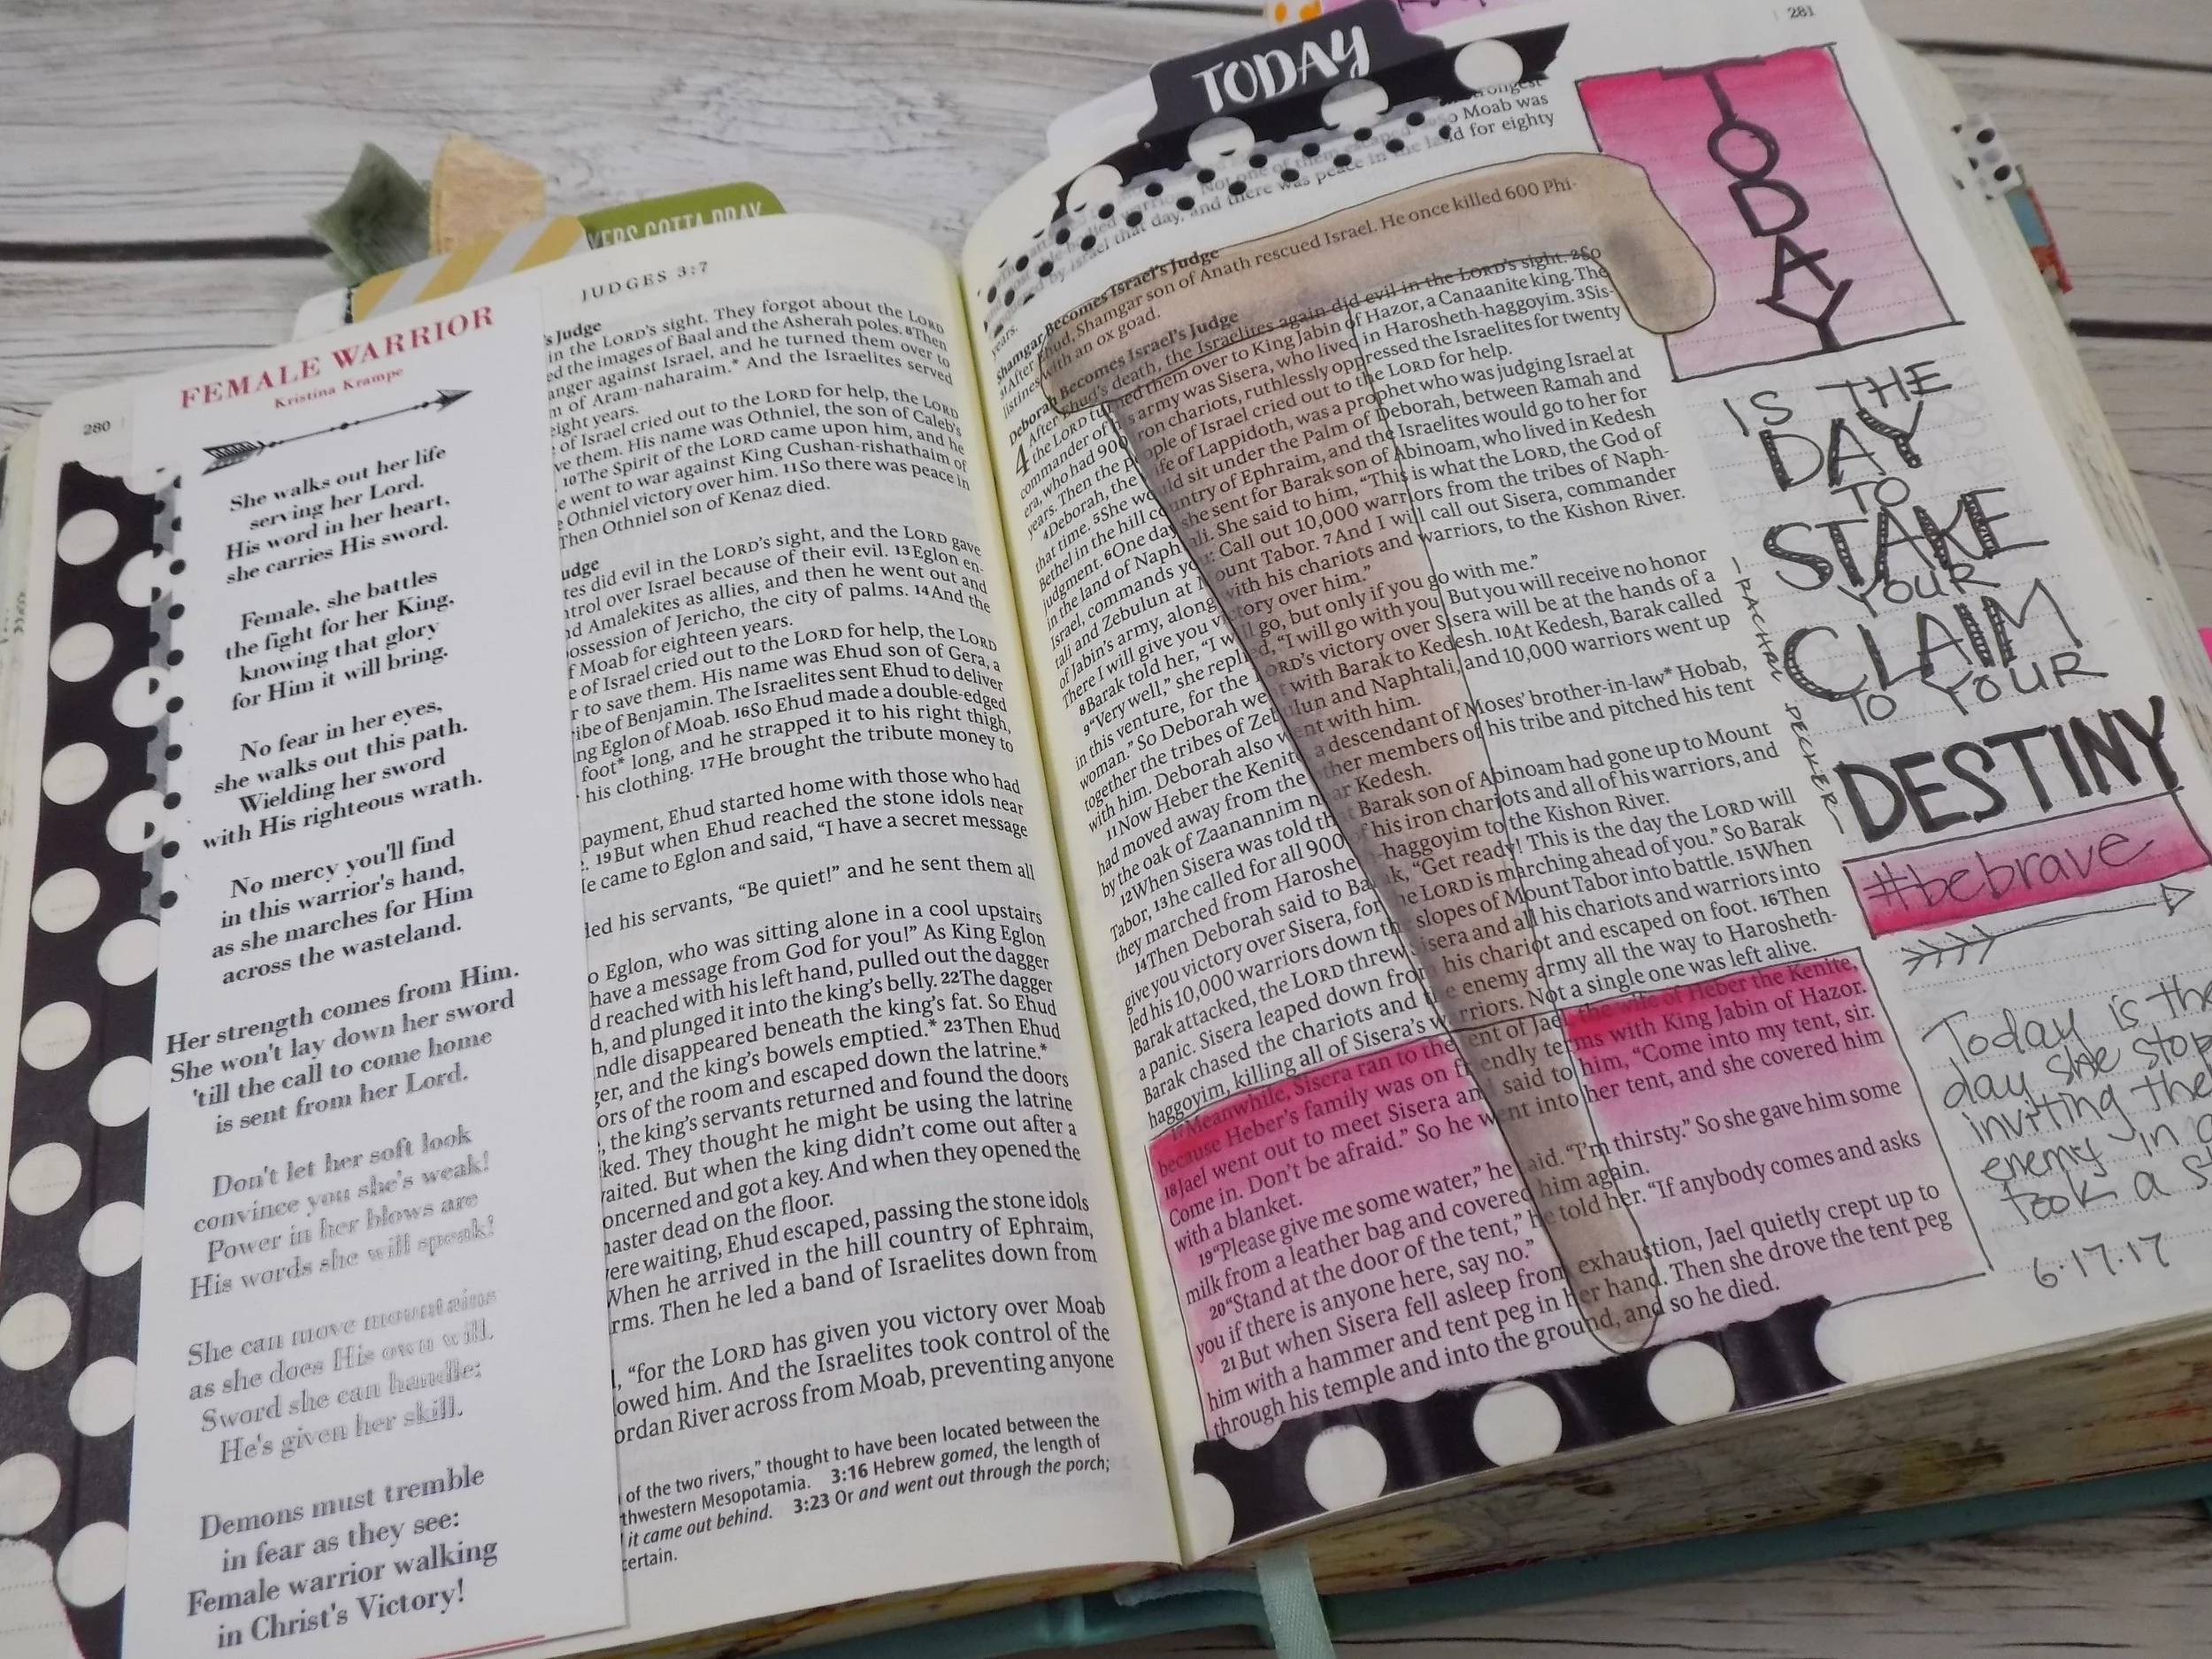 TODAY
KERS GOTTA PRAY
280
JUDGES 3:7
FEMALE WARRIOR
Kristina Krampe
She walks out her life
serving her Lord.
His word in her heart,
she carries His sword.
Female, she battles
the fight for her King,
knowing that glory
for Him it will bring.
No fear in her eyes,
she walks out this path.
Wielding her sword
with His righteous wrath.
No mercy you'll find
in this warrior's hand,
as she marches for Him
across the wasteland.
Her strength comes from Him.
She won't lay down her sword
'till the call to come home
is sent from her Lord.
Don't let her soft look
convince you she's weak!
Power in her blows are
His words she will speak!
She can move mountains
as she does His own will.
Sword she can handle;
He's given her skill.
Demons must tremble
in fear as they see:
Female warrior walking
in Christ's Victory!
's Judge
in the LORD's sight. They forgot about the LORD
ed the images of Baal and the Asherah poles. 8Then
anger against Israel, and he turned them over to
m of Aram-naharaim.* And the Israelites served
eight years.
of Israel cried out to the LORD for help, the LORD
ve them. His name was Othniel, the son of Caleb's
10The Spirit of the LORD came upon him, and he
e went to war against King Cushan-rishathaim of
e Othniel victory over him. 11So there was peace in
Then Othniel son of Kenaz died.
udge
tes did evil in the LORD's sight, and the LORD gave
ntrol over Israel because of their evil. 13Eglon en-
nd Amalekites as allies, and then he went out and
ossession of Jericho, the city of palms. 14And the
f Moab for eighteen years.
e of Israel cried out to the LORD for help, the LORD
r to save them. His name was Ehud son of Gera, a
ribe of Benjamin. The Israelites sent Ehud to deliver
ng Eglon of Moab. 16So Ehud made a double-edged
foot* long, and he strapped it to his right thigh,
his clothing. 17He brought the tribute money to
payment, Ehud started home with those who had
. 19But when Ehud reached the stone idols near
He came to Eglon and said, "I have a secret message
led his servants, "Be quiet!" and he sent them all
o Eglon, who was sitting alone in a cool upstairs
have a message from God for you!" As King Eglon
d reached with his left hand, pulled out the dagger
h, and plunged it into the king's belly. 22The dagger
ndle disappeared beneath the king's fat. So Ehud
ger, and the king's bowels emptied.* 23Then Ehud
ors of the room and escaped down the latrine.*
, the king's servants returned and found the doors
ked. They thought he might be using the latrine
aited. But when the king didn't come out after a
oncerned and got a key. And when they opened the
master dead on the floor.
were waiting, Ehud escaped, passing the stone idols
When he arrived in the hill country of Ephraim,
rms. Then he led a band of Israelites down from
, "for the LORD has given you victory over Moab
owed him. And the Israelites took control of the
ordan River across from Moab, preventing anyone
of the two rivers," thought to have been located between the
thwestern Mesopotamia. 3:16 Hebrew gomed, the length of
it came out behind. 3:23 Or and went out through the porch;
certain.
281
strongest
So Moab was
day, and there was peace in the land for eighty
years.
Shamgar Becomes Israel's Judge
31After Ehud, Shamgar son of Anath rescued Israel. He once killed 600 Phi-
listines with an ox goad.
Deborah Becomes Israel's Judge
4 After Ehud's death, the Israelites again did evil in the LORD's sight. 2So
the LORD turned them over to King Jabin of Hazor, a Canaanite king. The
commander of his army was Sisera, who lived in Harosheth-haggoyim. 3Sis-
era, who had 900 iron chariots, ruthlessly oppressed the Israelites for twenty
years. Then the people of Israel cried out to the LORD for help.
4Deborah, the wife of Lappidoth, was a prophet who was judging Israel at
that time. 5She would sit under the Palm of Deborah, between Ramah and
Bethel in the hill country of Ephraim, and the Israelites would go to her for
judgment. 6One day she sent for Barak son of Abinoam, who lived in Kedesh
in the land of Naphtali. She said to him, "This is what the LORD, the God of
Israel, commands you: Call out 10,000 warriors from the tribes of Naph-
tali and Zebulun at Mount Tabor. 7And I will call out Sisera, commander
of Jabin's army, along with his chariots and warriors, to the Kishon River.
There I will give you victory over him."
8Barak told her, "I will go, but only if you go with me."
9"Very well," she replied, "I will go with you. But you will receive no honor
in this venture, for the LORD's victory over Sisera will be at the hands of a
woman." So Deborah went with Barak to Kedesh. 10At Kedesh, Barak called
together the tribes of Zebulun and Naphtali, and 10,000 warriors went up
with him. Deborah also went with him.
11Now Heber the Kenite, a descendant of Moses' brother-in-law* Hobab,
had moved away from the other members of his tribe and pitched his tent
by the oak of Zaanannim near Kedesh.
12When Sisera was told that Barak son of Abinoam had gone up to Mount
Tabor, 13he called for all 900 of his iron chariots and all of his warriors, and
they marched from Harosheth-haggoyim to the Kishon River.
14Then Deborah said to Barak, "Get ready! This is the day the LORD will
give you victory over Sisera, for the LORD is marching ahead of you." So Barak
led his 10,000 warriors down the slopes of Mount Tabor into battle. 15When
Barak attacked, the LORD threw Sisera and all his chariots and warriors into
a panic. Sisera leaped down from his chariot and escaped on foot. 16Then
Barak chased the chariots and the enemy army all the way to Harosheth-
haggoyim, killing all of Sisera's warriors. Not a single one was left alive.
17Meanwhile, Sisera ran to the tent of Jael, the wife of Heber the Kenite,
because Heber's family was on friendly terms with King Jabin of Hazor.
18Jael went out to meet Sisera and said to him, "Come into my tent, sir.
Come in. Don't be afraid." So he went into her tent, and she covered him
with a blanket.
19"Please give me some water," he said. "I'm thirsty." So she gave him some
milk from a leather bag and covered him again.
20"Stand at the door of the tent," he told her. "If anybody comes and asks
you if there is anyone here, say no."
21But when Sisera fell asleep from exhaustion, Jael quietly crept up to
him with a hammer and tent peg in her hand. Then she drove the tent peg
through his temple and into the ground, and so he died.
TODAY
IS THE
DAY
TO
STAKE
YOUR
CLAIM
TO YOUR
DESTINY
- RACHAL DECKER -
#bebrave
Today is the
day she stop
inviting the
enemy in
took a st
6.17.17